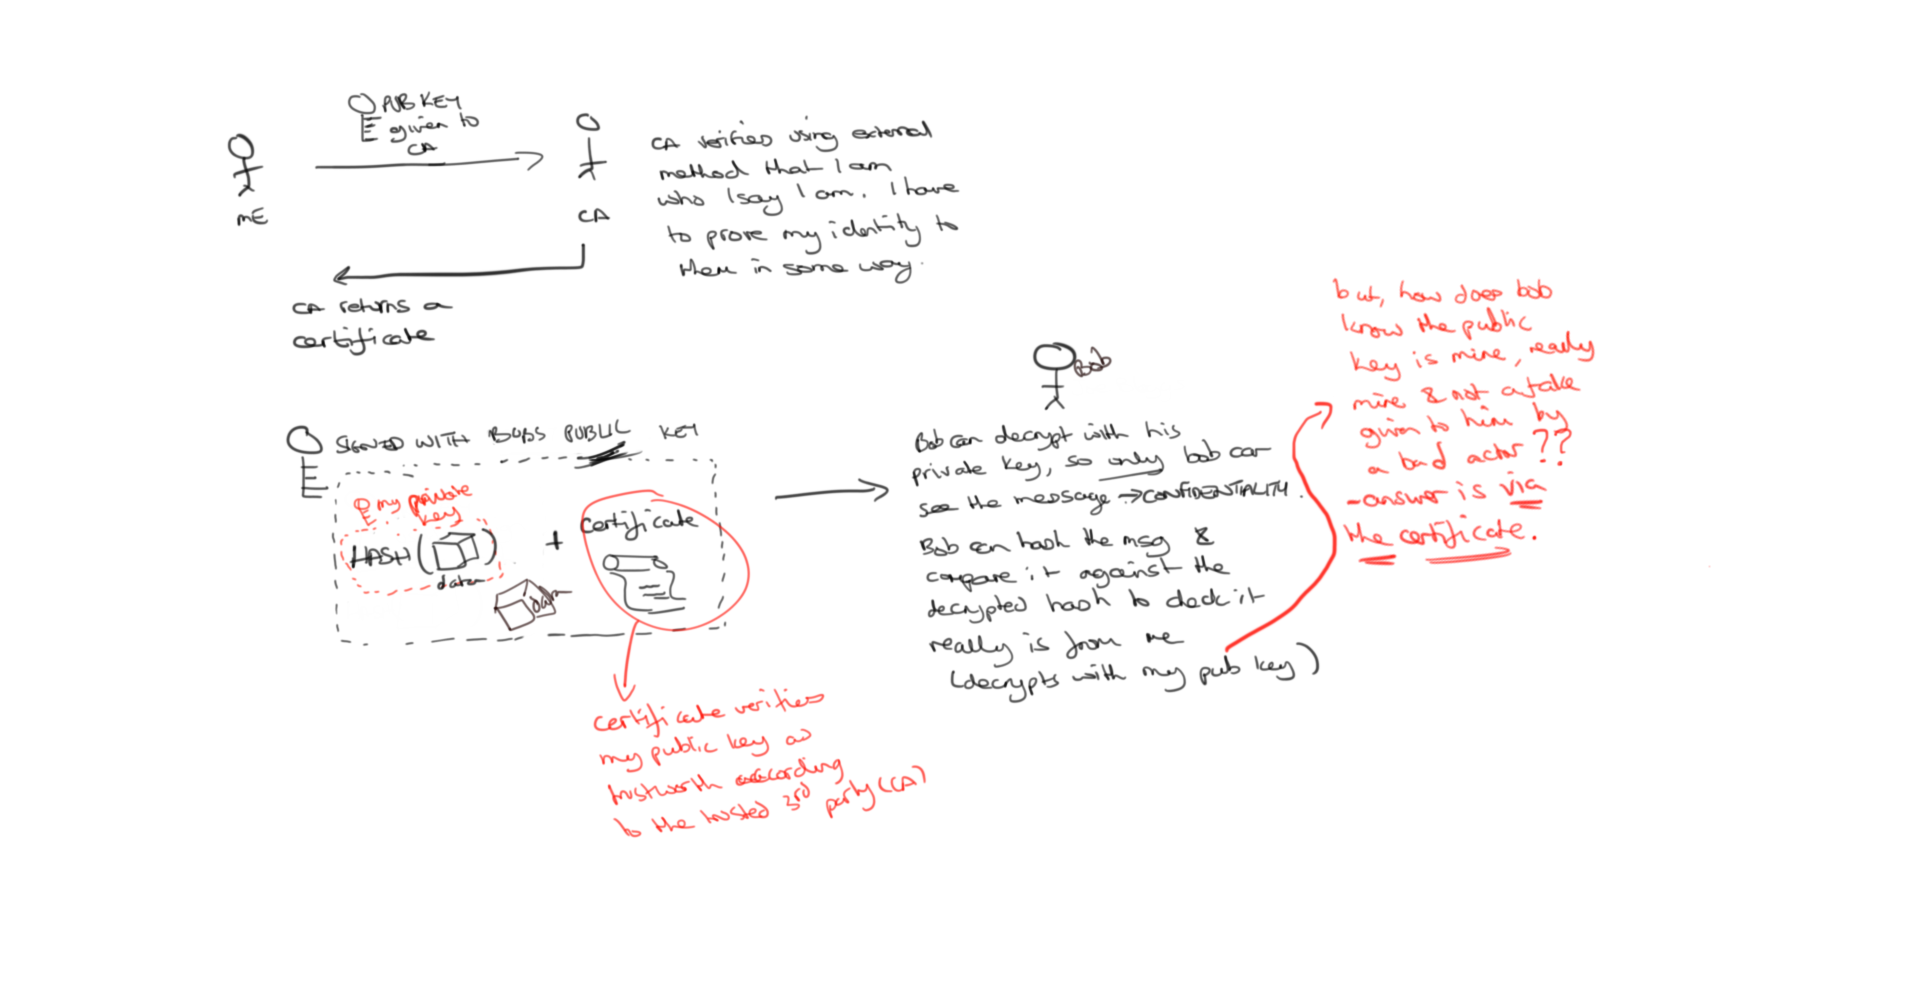 PUB KEY
given to
CA
ME
CA
CA verifies using external
method that I am
who I say I am. I have
to prove my identity to
them in some way.
CA returns a
certificate
SIGNED WITH BOBS PUBLIC KEY
my private
key
HASH(
)
data
data
+
certificate
certificate verifies
my public key as
trustworth according
to the trusted 3rd party (CA)
Bob
Bob can decrypt with his
private key, so only bob can
see the message → CONFIDENTIALITY.
Bob can hash the msg &
compare it against the
decrypted hash to check it
really is from me
(decrypts with my pub key)
but, how does bob
know the public
key is mine, really
mine & not a fake
given to him by
a bad actor??
- answer is via
the certificate.